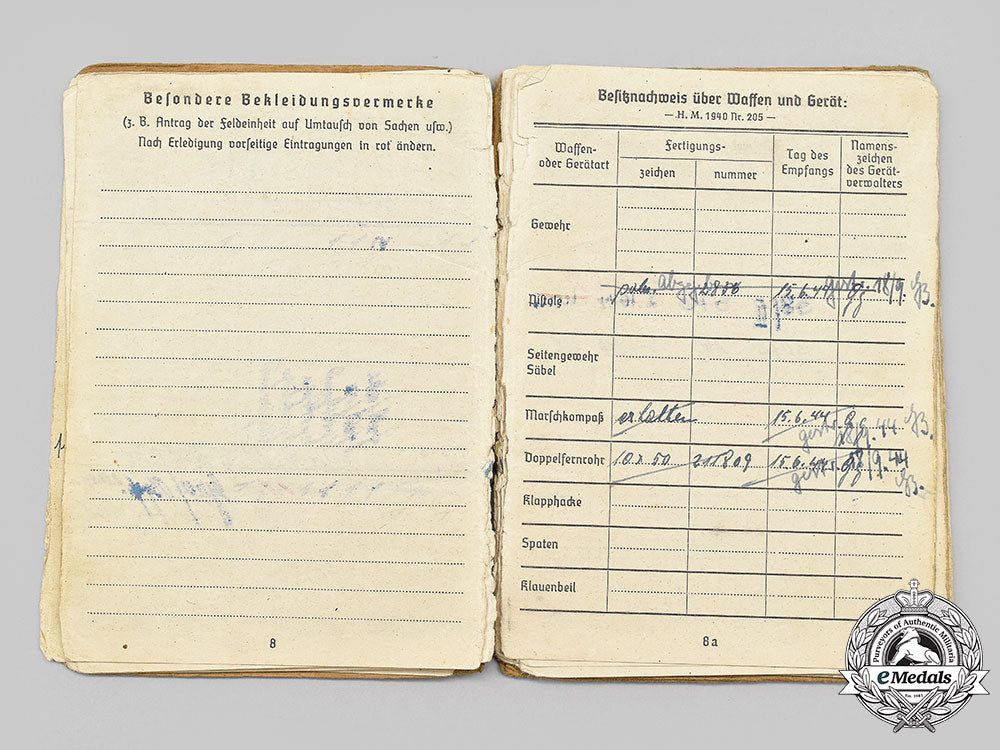 Besondere Bekleidungsvermerke
(z. B. Antrag der Feldeinheit auf Umtausch von Sachen usw.)
Nach Erledigung vorseitige Eintragungen in rot ändern.
8
Besitznachweis über Waffen und Gerät:
— H. M. 1940 Nr. 205 —
Waffen- oder Gerätart
Fertigungs-
zeichen
nummer
Tag des Empfangs
Namens- zeichen des Gerät- verwalters
Gewehr
Pistole poln. 15.6.44 18/9.
Seitengewehr
Säbel
Marschkompaß erhalten 15.6.44
9.44
Doppelfernrohr 10 x 50 15.6.44 18/9.44
Klapphacke
Spaten
Klauenbeil
8a
Purveyors of Authentic Militaria
eMedals